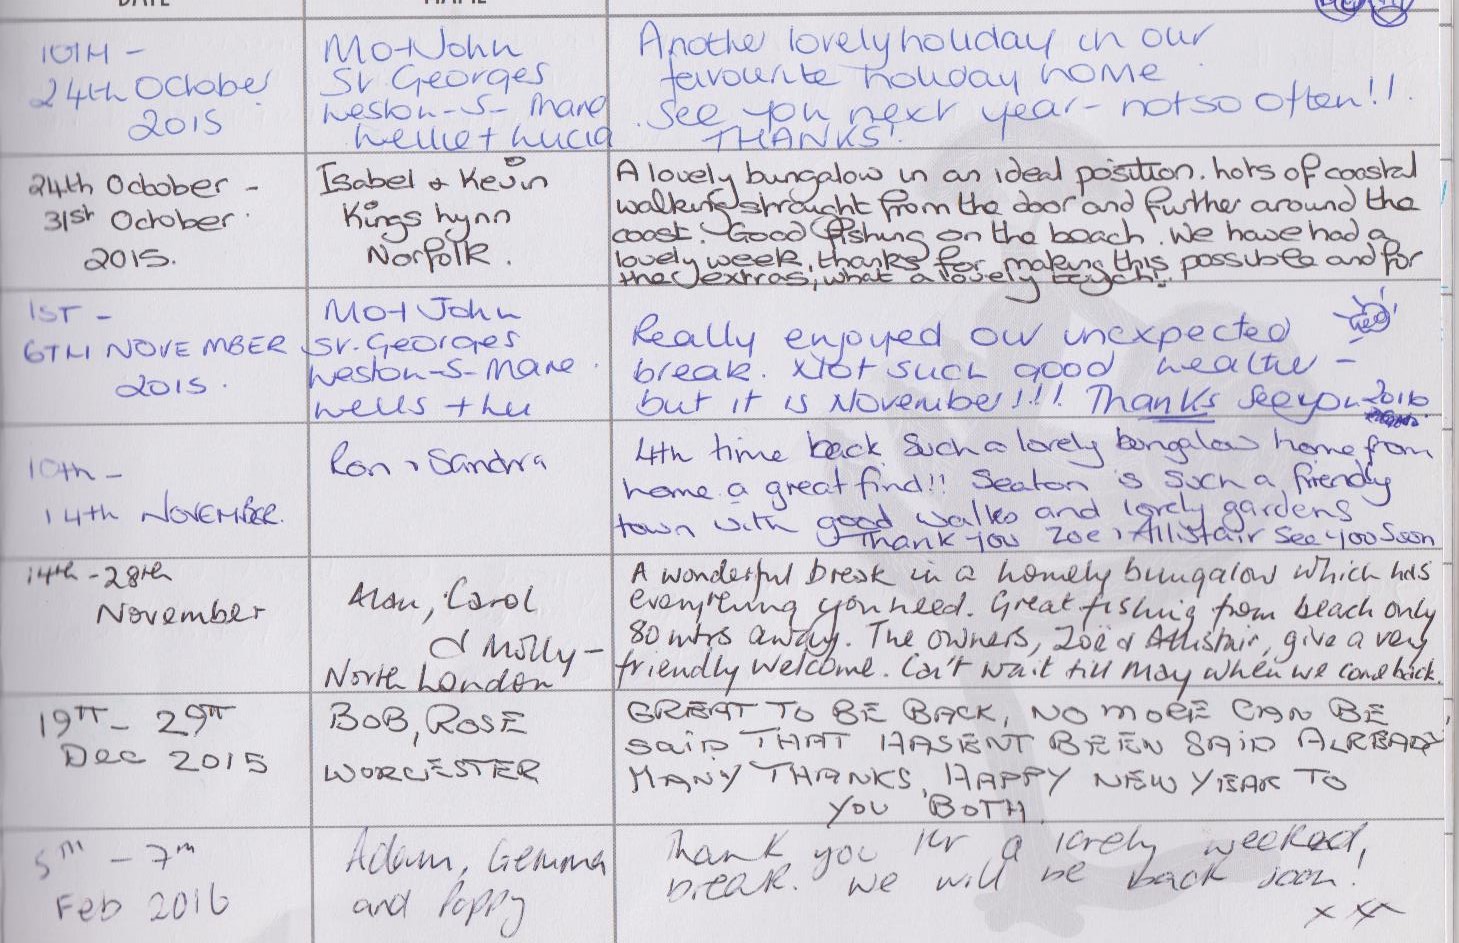 DATE NAME
10TH -
24th October
2015
Mo + John
St. Georges
Weston-S-Mare
Wellie + Lucia
Anothe lovely holiday in our
favourite holiday home
See you next year - not so often!!
THANKS!
24th October -
31st October
2015.
Isabel & Kevin
Kings Lynn
Norfolk.
A lovely bungalow in an ideal position. Lots of coastal
walking straight from the door and further around the
coast. Good fishing on the beach. We have had a
lovely week, thanks for making this possible and for
the extras, what a lovely touch!
1ST -
6TH NOVEMBER
2015.
Mo + John
St. Georges
Weston-S-Mare.
Wells + Lu
Really enjoyed our unexpected
break. Not such good weather -
but it is November!!! Thanks see you 2016
10th -
14th NOVEMBER.
Ron & Sandra
4th time back. Such a lovely bungalow home from
home a great find!! Seaton is such a friendly
town with good walks and lovely gardens
Thank you Zoe & Allistair See you Soon
14th - 28th
November
Alan, Carol
& Molly -
North London
A wonderful break in a homely bungalow which has
everything you need. Great fishing from beach only
80 mtrs away. The owners, Zoë & Allistair, give a very
friendly welcome. Can't wait till May when we come back.
19TH - 29TH
Dec 2015
BOB, ROSE
WORCESTER
GREAT TO BE BACK, NO MORE CAN BE
SAID THAT HASENT BEEN SAID ALREADY
MANY THANKS, HAPPY NEW YEAR TO
YOU BOTH.
5th - 7th
Feb 2016
Adam, Gemma
and Poppy
Thank you for a lovely weeked,
break. We will be back soon!
x x x